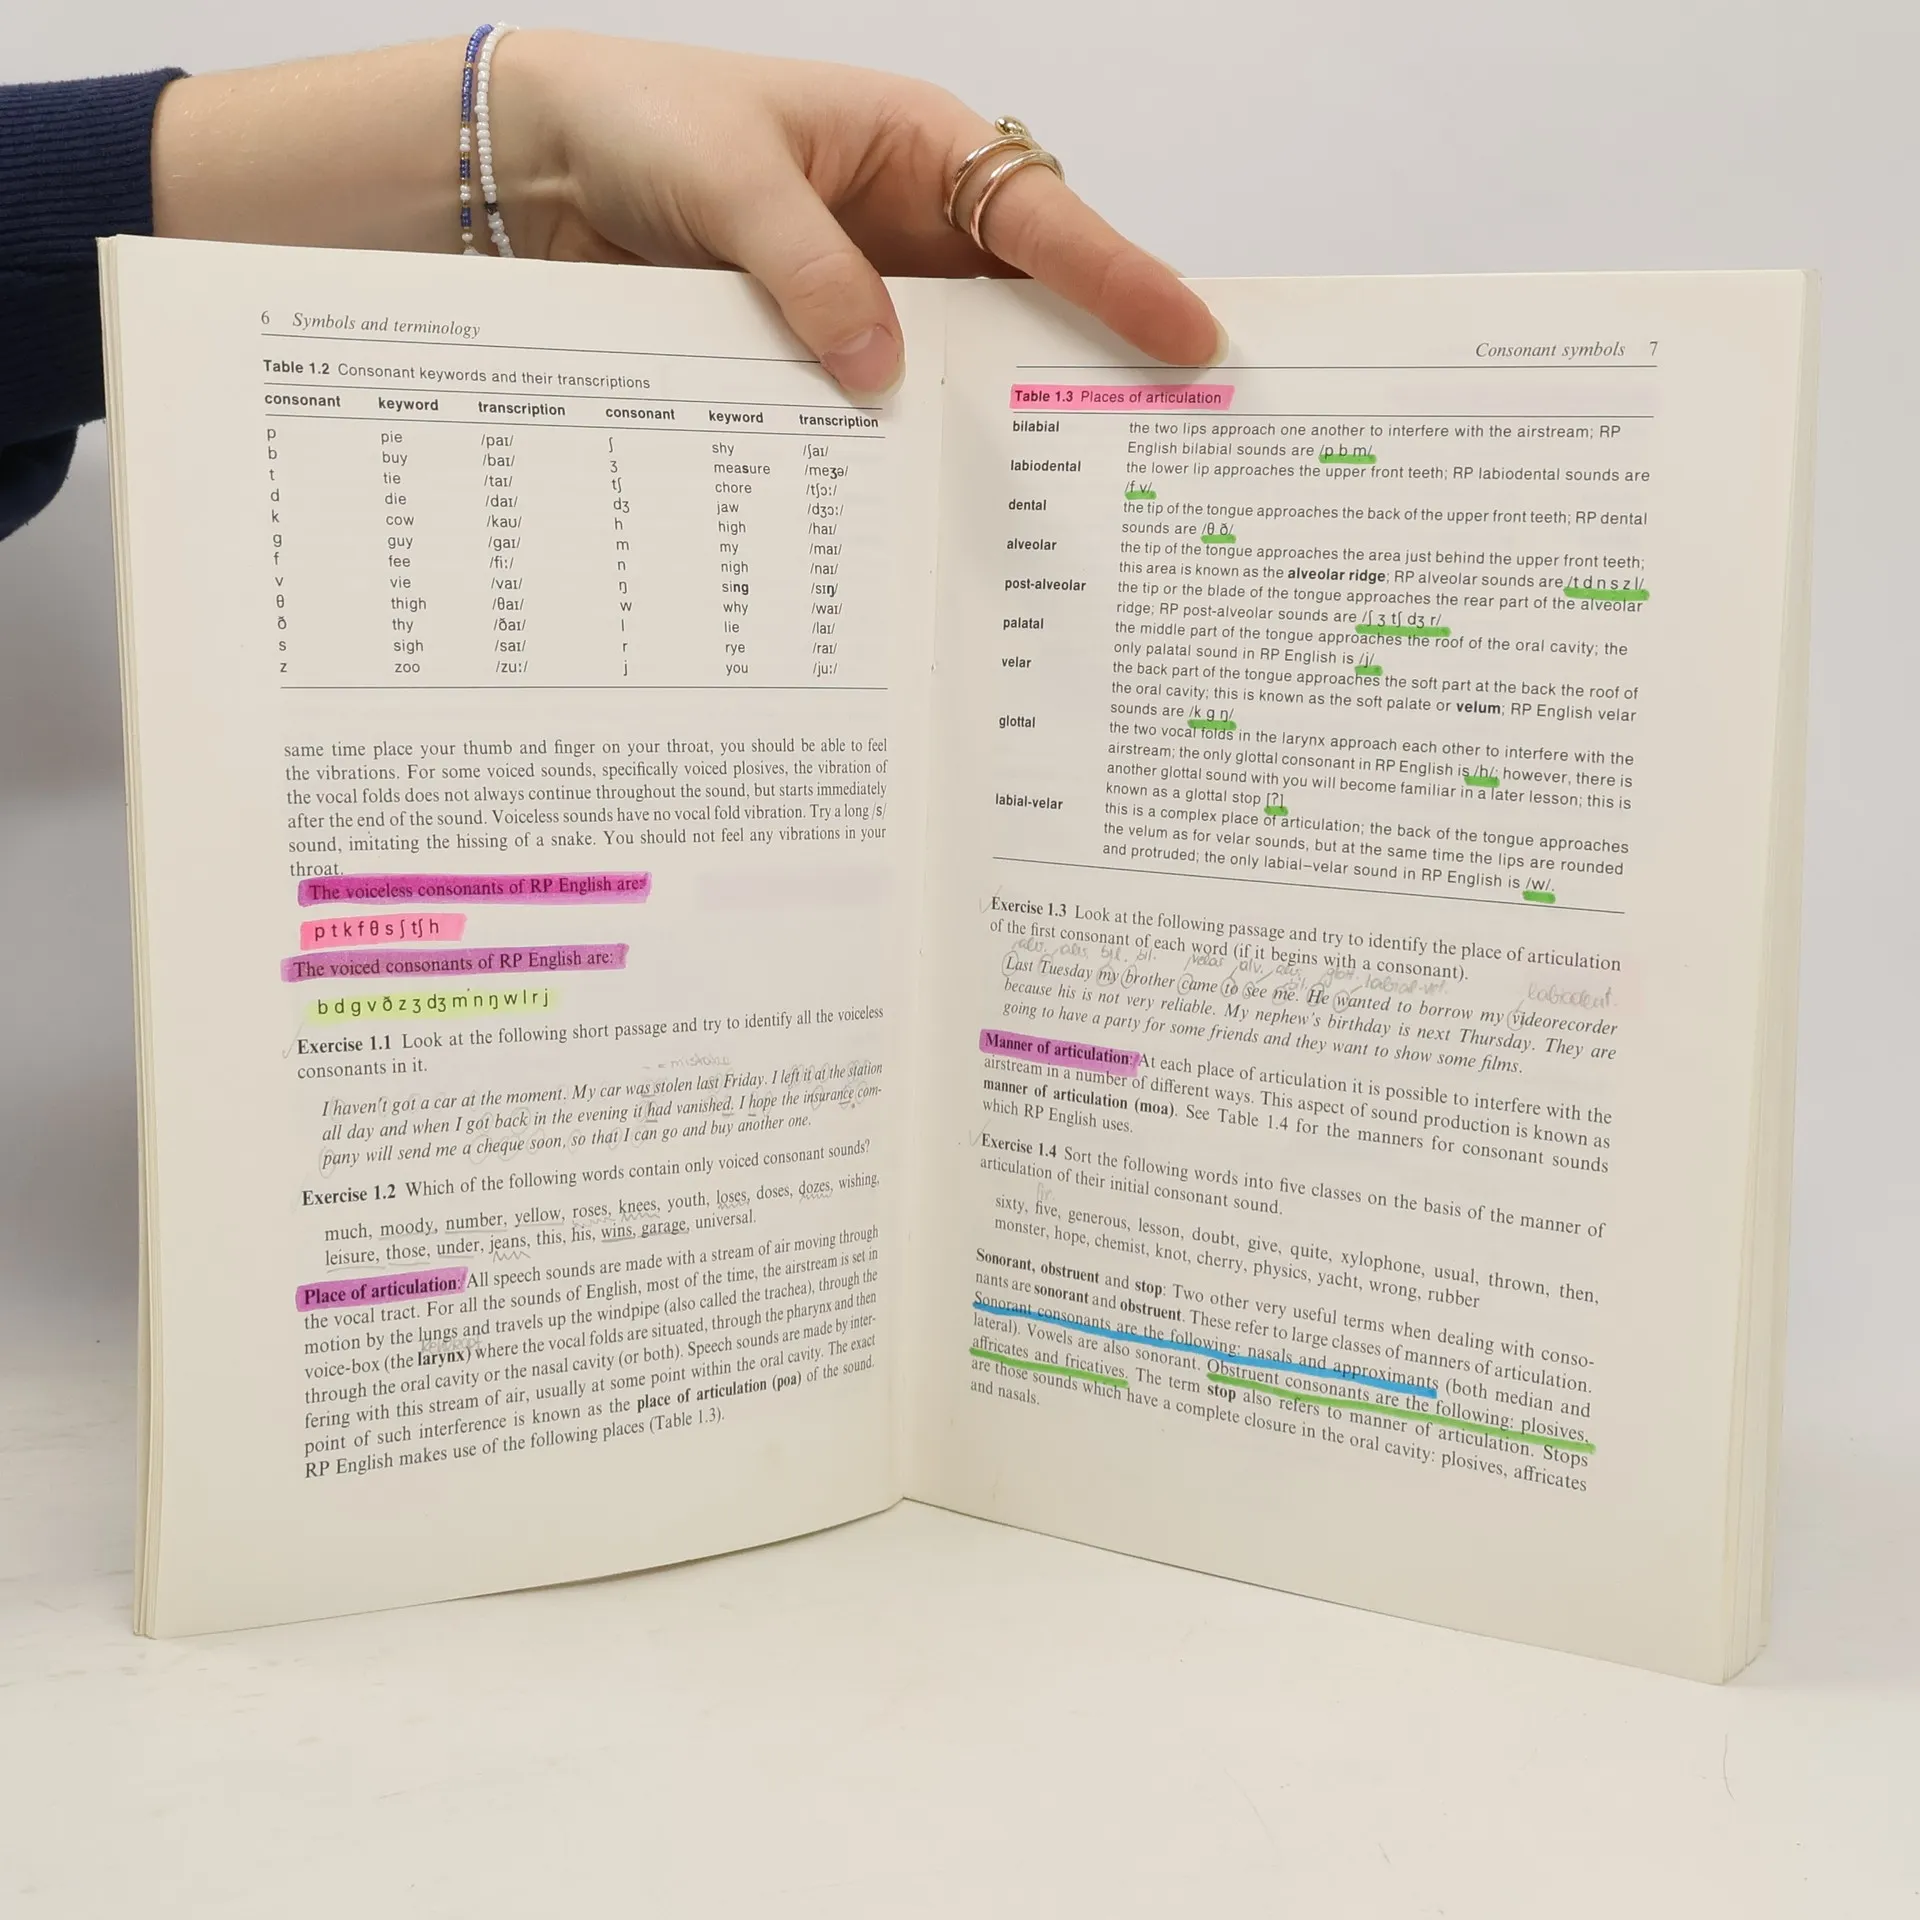 6 Symbols and terminology
Table 1.2 Consonant keywords and their transcriptions
consonant keyword transcription consonant keyword transcription
p pie /paɪ/ ʃ shy /ʃaɪ/
b buy /baɪ/ ʒ measure /meʒə/
t tie /taɪ/ tʃ chore /tʃɔː/
d die /daɪ/ dʒ jaw /dʒɔː/
k cow /kaʊ/ h high /haɪ/
g guy /gaɪ/ m my /maɪ/
f fee /fiː/ n nigh /naɪ/
v vie /vaɪ/ ŋ sing /sɪŋ/
θ thigh /θaɪ/ w why /waɪ/
ð thy /ðaɪ/ l lie /laɪ/
s sigh /saɪ/ r rye /raɪ/
z zoo /zuː/ j you /juː/
same time place your thumb and finger on your throat, you should be able to feel
the vibrations. For some voiced sounds, specifically voiced plosives, the vibration of
the vocal folds does not always continue throughout the sound, but starts immediately
after the end of the sound. Voiceless sounds have no vocal fold vibration. Try a long /s/
sound, imitating the hissing of a snake. You should not feel any vibrations in your
throat.
The voiceless consonants of RP English are:
p t k f θ s ʃ tʃ h
The voiced consonants of RP English are:
b d g v ð z ʒ dʒ m n ŋ w l r j
Exercise 1.1 Look at the following short passage and try to identify all the voiceless
consonants in it.
= mistake
I haven't got a car at the moment. My car was stolen last Friday. I left it at the station
all day and when I got back in the evening it had vanished. I hope the insurance com-
pany will send me a cheque soon, so that I can go and buy another one.
Exercise 1.2 Which of the following words contain only voiced consonant sounds?
much, moody, number, yellow, roses, knees, youth, loses, doses, dozes, wishing,
leisure, those, under, jeans, this, his, wins, garage, universal.
Place of articulation: All speech sounds are made with a stream of air moving through
the vocal tract. For all the sounds of English, most of the time, the airstream is set in
motion by the lungs and travels up the windpipe (also called the trachea), through the
voice-box (the larynx) where the vocal folds are situated, through the pharynx and then
through the oral cavity or the nasal cavity (or both). Speech sounds are made by inter-
fering with this stream of air, usually at some point within the oral cavity. The exact
point of such interference is known as the place of articulation (poa) of the sound.
RP English makes use of the following places (Table 1.3).
Consonant symbols 7
Table 1.3 Places of articulation
bilabial the two lips approach one another to interfere with the airstream; RP
English bilabial sounds are /p b m/
labiodental the lower lip approaches the upper front teeth; RP labiodental sounds are
/f v/
dental the tip of the tongue approaches the back of the upper front teeth; RP dental
sounds are /θ ð/
alveolar the tip of the tongue approaches the area just behind the upper front teeth;
this area is known as the alveolar ridge; RP alveolar sounds are /t d n s z l/
post-alveolar the tip or the blade of the tongue approaches the rear part of the alveolar
ridge; RP post-alveolar sounds are /ʃ ʒ tʃ dʒ r/
palatal the middle part of the tongue approaches the roof of the oral cavity; the
only palatal sound in RP English is /j/
velar the back part of the tongue approaches the soft part at the back the roof of
the oral cavity; this is known as the soft palate or velum; RP English velar
sounds are /k g ŋ/
glottal the two vocal folds in the larynx approach each other to interfere with the
airstream; the only glottal consonant in RP English is /h/; however, there is
another glottal sound with you will become familiar in a later lesson; this is
known as a glottal stop [ʔ]
labial-velar this is a complex place of articulation; the back of the tongue approaches
the velum as for velar sounds, but at the same time the lips are rounded
and protruded; the only labial–velar sound in RP English is /w/.
Exercise 1.3 Look at the following passage and try to identify the place of articulation
of the first consonant of each word (if it begins with a consonant).
alv. alv. bil. bil. velar alv. alv. bil. glott. labial-vel. labiodent.
Last Tuesday my brother came to see me. He wanted to borrow my videorecorder
because his is not very reliable. My nephew's birthday is next Thursday. They are
going to have a party for some friends and they want to show some films.
Manner of articulation: At each place of articulation it is possible to interfere with the
airstream in a number of different ways. This aspect of sound production is known as
manner of articulation (moa). See Table 1.4 for the manners for consonant sounds
which RP English uses.
Exercise 1.4 Sort the following words into five classes on the basis of the manner of
articulation of their initial consonant sound.
fr.
sixty, five, generous, lesson, doubt, give, quite, xylophone, usual, thrown, then,
monster, hope, chemist, knot, cherry, physics, yacht, wrong, rubber
Sonorant, obstruent and stop: Two other very useful terms when dealing with conso-
nants are sonorant and obstruent. These refer to large classes of manners of articulation.
Sonorant consonants are the following: nasals and approximants (both median and
lateral). Vowels are also sonorant. Obstruent consonants are the following: plosives,
affricates and fricatives. The term stop also refers to manner of articulation. Stops
are those sounds which have a complete closure in the oral cavity: plosives, affricates
and nasals.